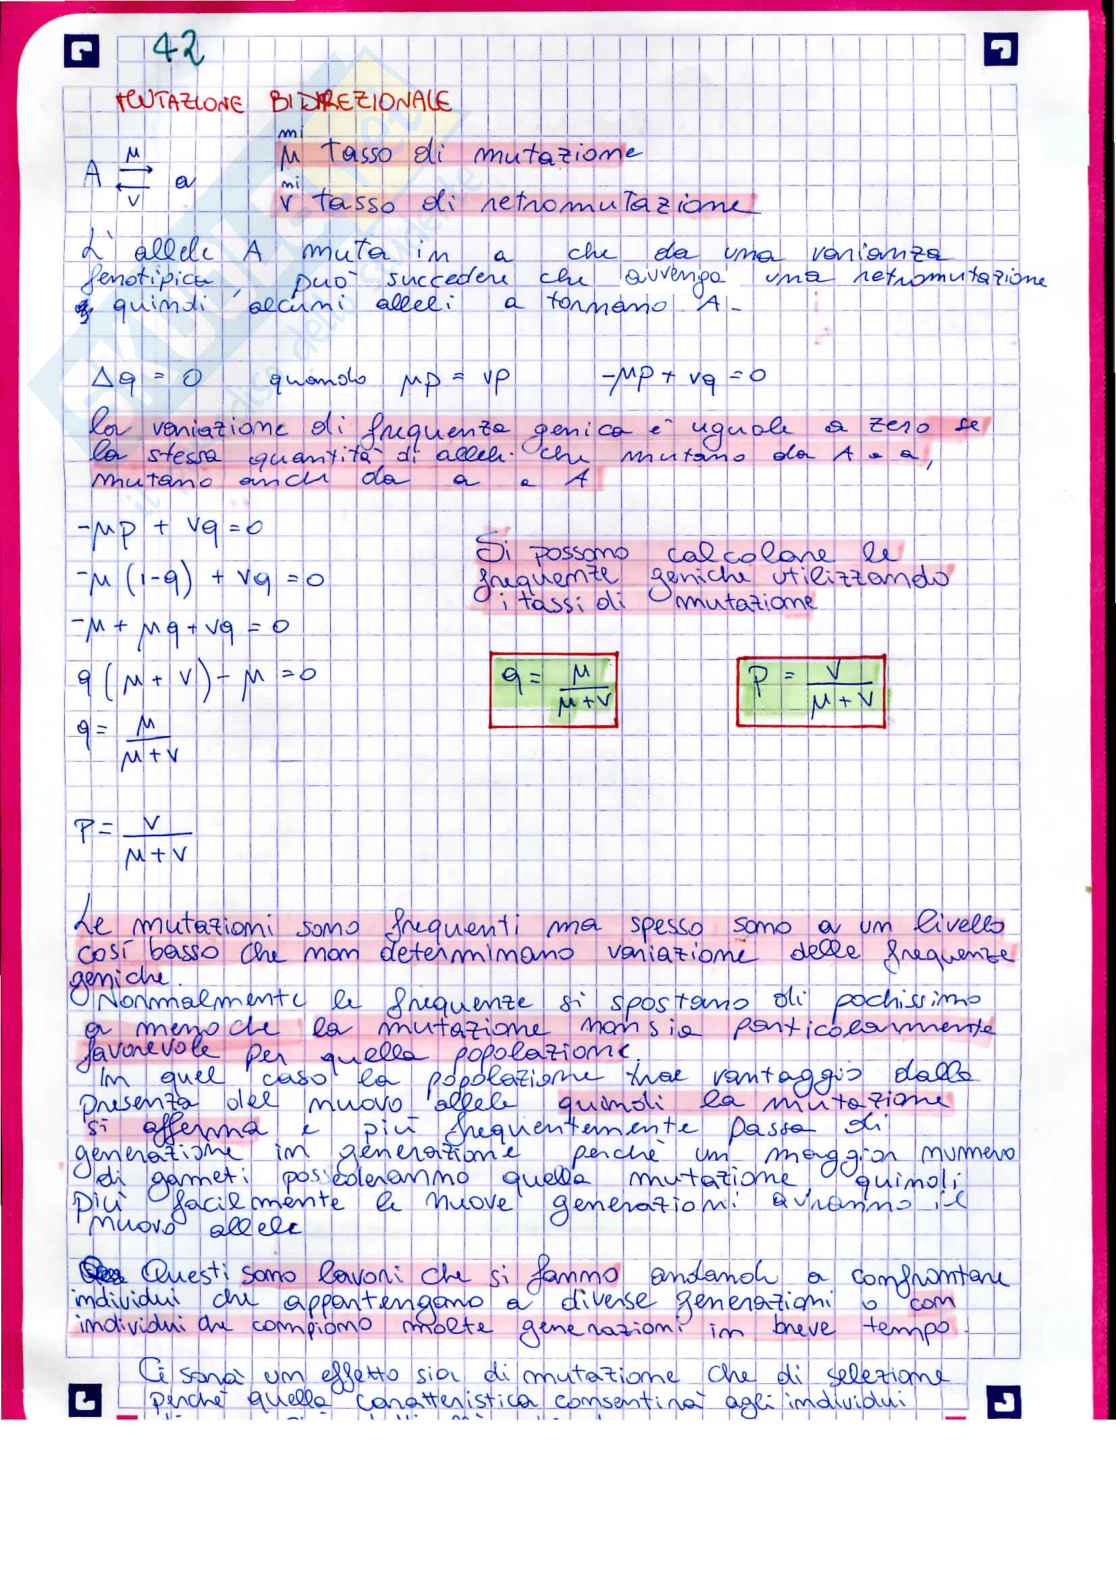 42
MUTAZIONE BIDIREZIONALE
mi
A μ ⇄ ν a μ tasso di mutazione
ni
ν tasso di retromutazione
L'allele A muta in a che da una varianza
fenotipica, può succedere che avvenga una retromutazione
quindi alcuni alleli a tornano A.
Δq = 0 quando μp = νp -μp + νq = 0
la variazione di frequenza genica è uguale a zero se
la stessa quantità di alleli che mutano da A a a,
mutano anche da a a A
-μp + νq = 0
-μ (1-q) + νq = 0
-μ + μq + νq = 0
q (μ + ν) - μ = 0
q = μ / μ + ν
Si possono calcolare le
frequenze geniche utilizzando
i tassi di mutazione
q = μ / μ + ν
P = ν / μ + ν
P = ν / μ + ν
Le mutazioni sono frequenti ma spesso sono a un livello
così basso che non determinano variazione delle frequenze
geniche.
Normalmente le frequenze si spostano di pochissimo
a meno che la mutazione non sia particolarmente
favorevole per quella popolazione.
In quel caso la popolazione trae vantaggio dalla
presenza del nuovo allele quindi la mutazione
si afferma e più frequentemente passa di
generazione in generazione perchè un maggior numero
di gameti possederanno quella mutazione, quindi
più facilmente le nuove generazioni avranno il
nuovo allele
Questi sono lavori che si fanno andando a confrontare
individui che appartengano a diverse generazioni o con
individui che compiono molte generazioni in breve tempo.
Ci sarà un effetto sia di mutazione che di selezione
perchè quella caratteristica consentirà agli individui